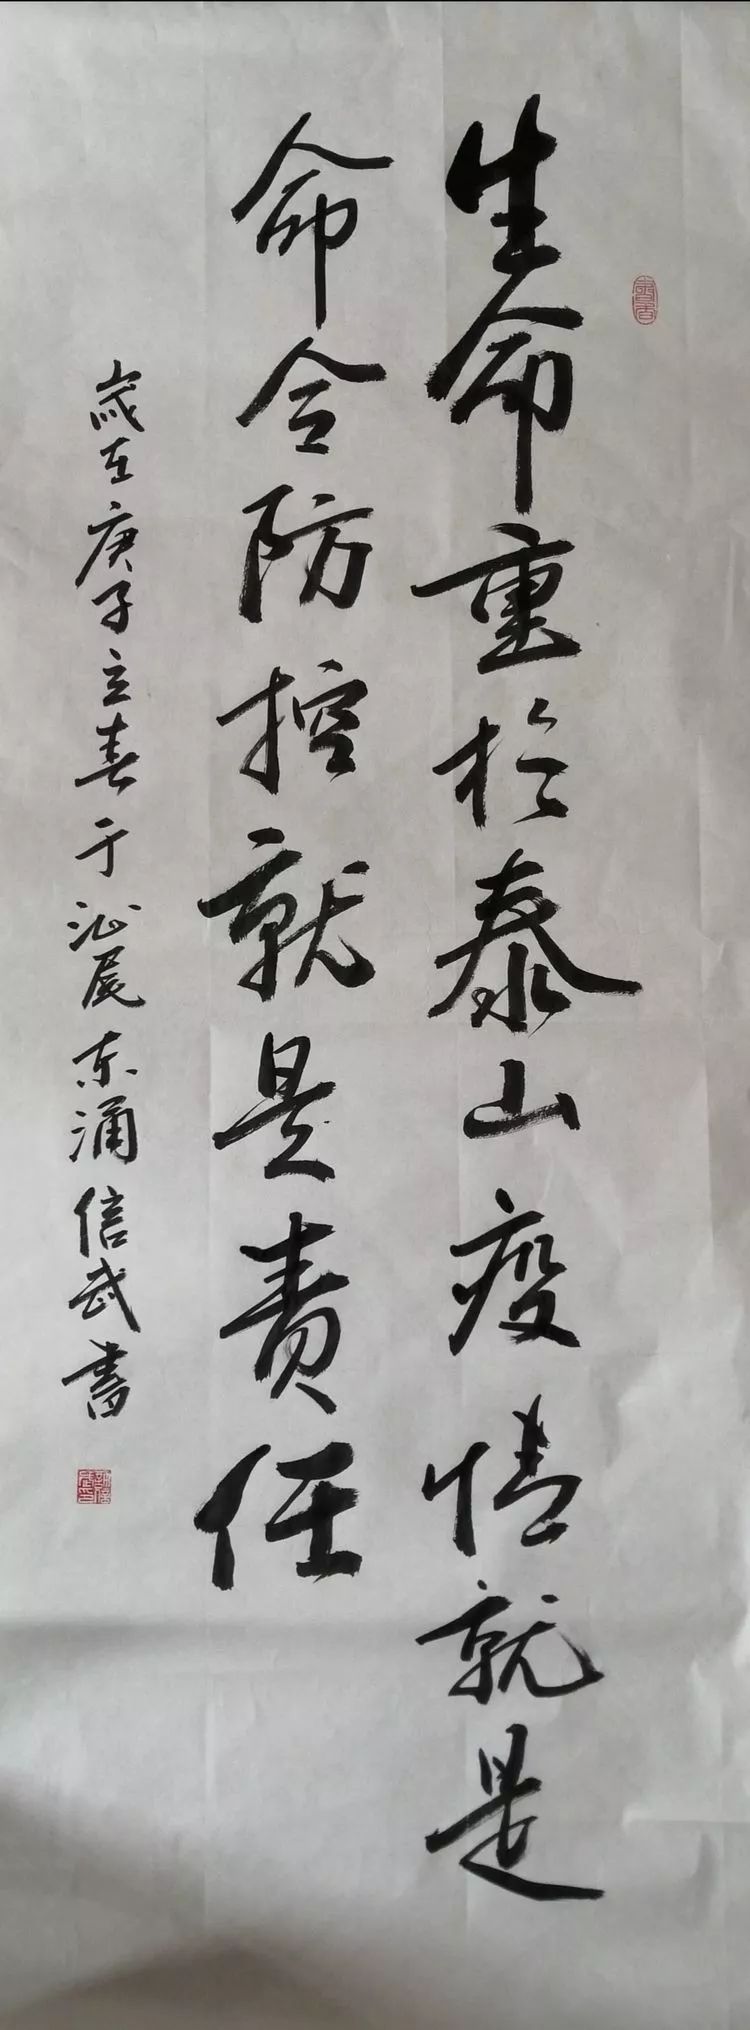 生命重於泰山疫情就是
命令防控就是责任
岁在庚子立春于沁展东涌信武书